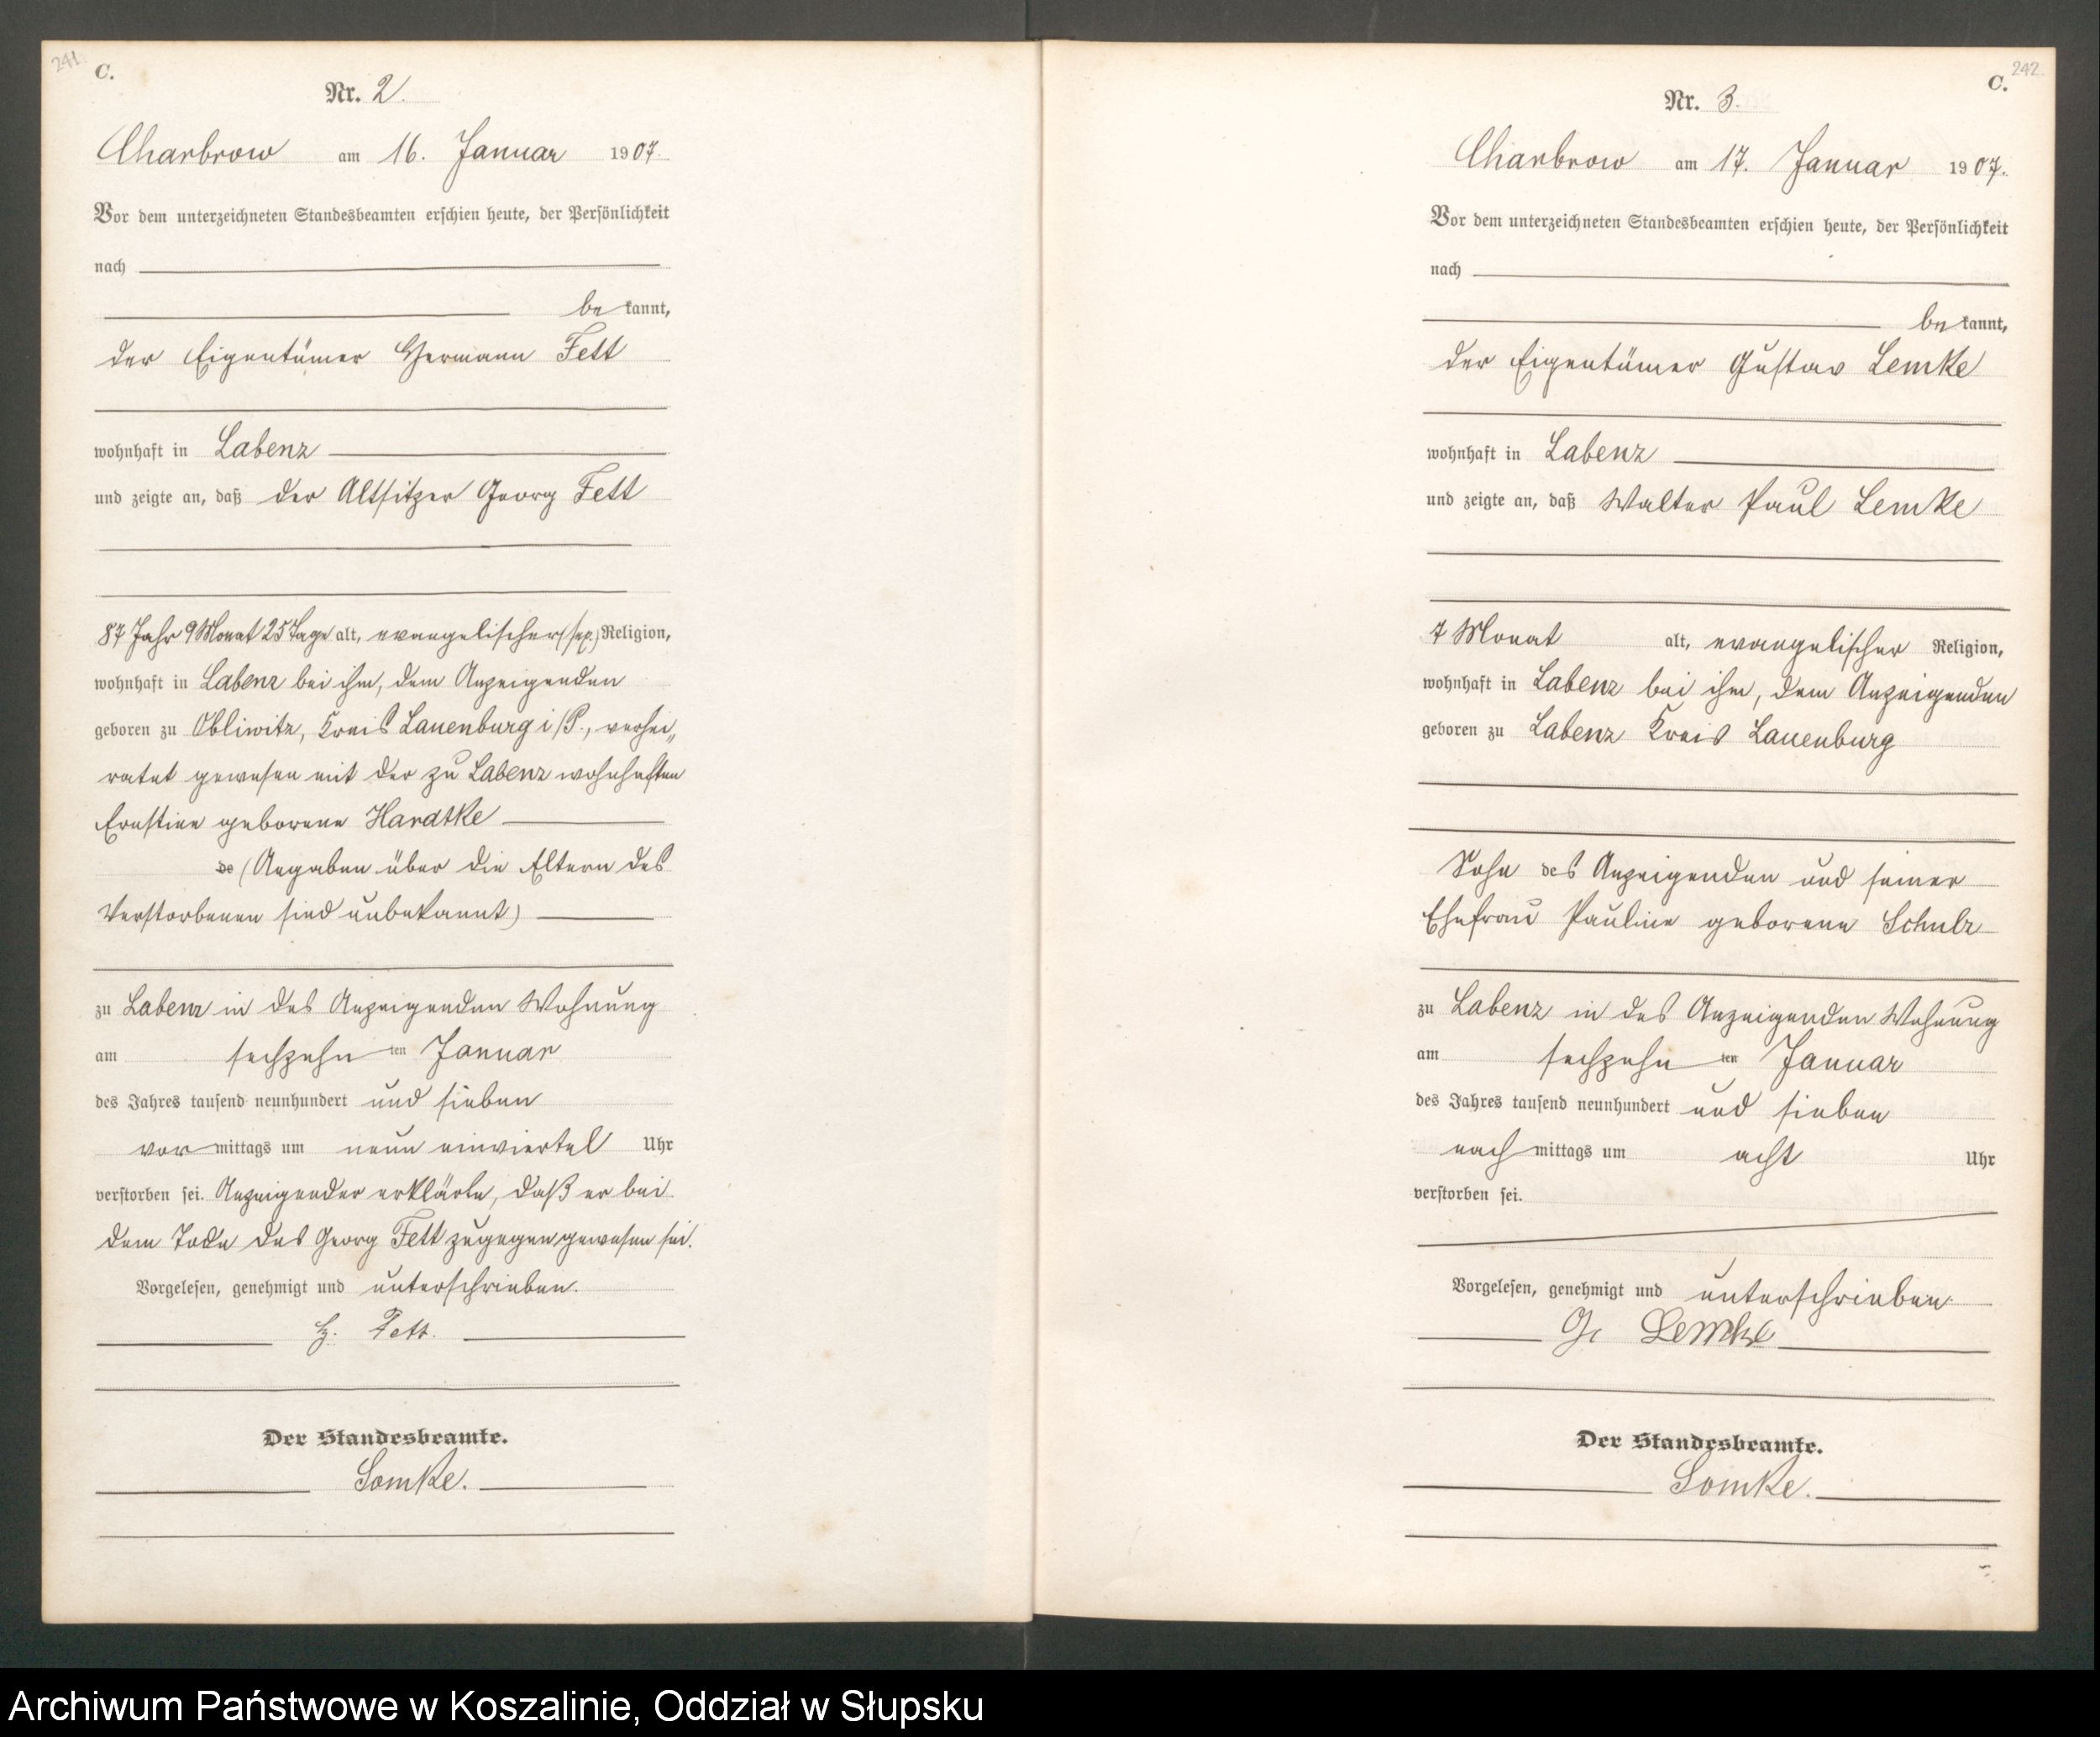 241.
C.
Nr. 2.
Charbrow am 16. Januar 1907.
Vor dem unterzeichneten Standesbeamten erschien heute, der Persönlichkeit
nach
be kannt,
der Eigentümer Hermann Fett
wohnhaft in Labenz
und zeigte an, daß der Altsitzer Georg Fett
87 Jahr 9 Monat 25 Tage alt, evangelischer (sep.) Religion,
wohnhaft in Labenz bei ihm, dem Anzeigenden
geboren zu Obliwitz, Kreis Lauenburg i/P., verhei„
ratet gewesen mit der zu Labenz wohnhaften
Ernstine geborene Hardtke
de (Angaben über die Eltern des
Verstorbenen sind unbekannt)
zu Labenz in des Anzeigenden Wohnung
am sechzehn ten Januar
des Jahres tausend neunhundert und sieben
vor mittags um neun einviertel Uhr
verstorben sei. Anzeigender erklärte, daß er bei
dem Tode des Georg Fett zugegen gewesen sei.
Vorgelesen, genehmigt und unterschrieben.
H. Fett.
Der Standesbeamte.
Somke.
242.
C.
Nr. 3.
Charbrow am 17. Januar 1907.
Vor dem unterzeichneten Standesbeamten erschien heute, der Persönlichkeit
nach
be kannt,
der Eigentümer Gustav Lemke
wohnhaft in Labenz
und zeigte an, daß Walter Paul Lemke
7 Monat alt, evangelischer Religion,
wohnhaft in Labenz bei ihm, dem Anzeigenden
geboren zu Labenz Kreis Lauenburg
Sohn des Anzeigenden und seiner
Ehefrau Pauline geborene Schulz
zu Labenz in des Anzeigenden Wohnung
am sechzehn ten Januar
des Jahres tausend neunhundert und sieben
nach mittags um acht Uhr
verstorben sei.
Vorgelesen, genehmigt und unterschrieben.
G. Lemke
Der Standesbeamte.
Somke.
Archiwum Państwowe w Koszalinie, Oddział w Słupsku